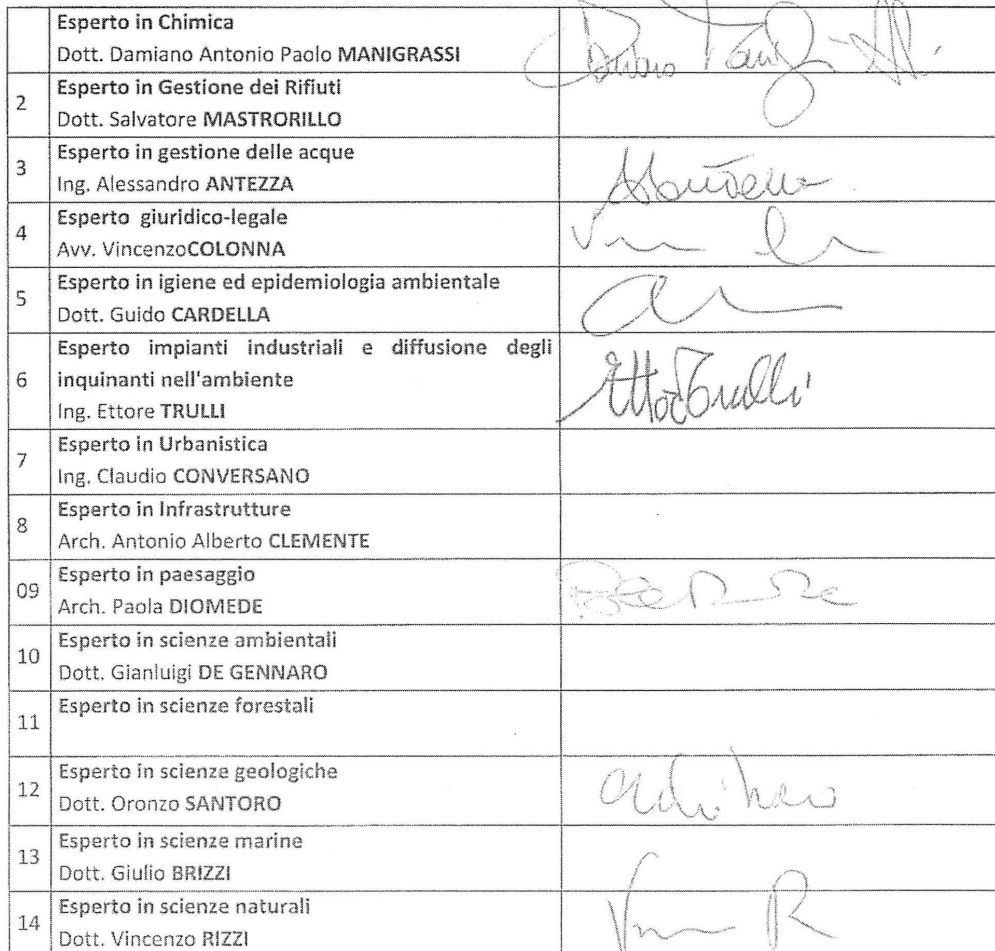 Esperto in Chimica
Dott. Damiano Antonio Paolo MANIGRASSI
2
Esperto in Gestione dei Rifiuti
Dott. Salvatore MASTRORILLO
3
Esperto in gestione delle acque
Ing. Alessandro ANTEZZA
4
Esperto giuridico-legale
Avv. VincenzoCOLONNA
5
Esperto in igiene ed epidemiologia ambientale
Dott. Guido CARDELLA
6
Esperto impianti industriali e diffusione degli
inquinanti nell'ambiente
Ing. Ettore TRULLI
7
Esperto in Urbanistica
Ing. Claudio CONVERSANO
8
Esperto in Infrastrutture
Arch. Antonio Alberto CLEMENTE
09
Esperto in paesaggio
Arch. Paola DIOMEDE
10
Esperto in scienze ambientali
Dott. Gianluigi DE GENNARO
11
Esperto in scienze forestali
12
Esperto in scienze geologiche
Dott. Oronzo SANTORO
13
Esperto in scienze marine
Dott. Giulio BRIZZI
14
Esperto in scienze naturali
Dott. Vincenzo RIZZI